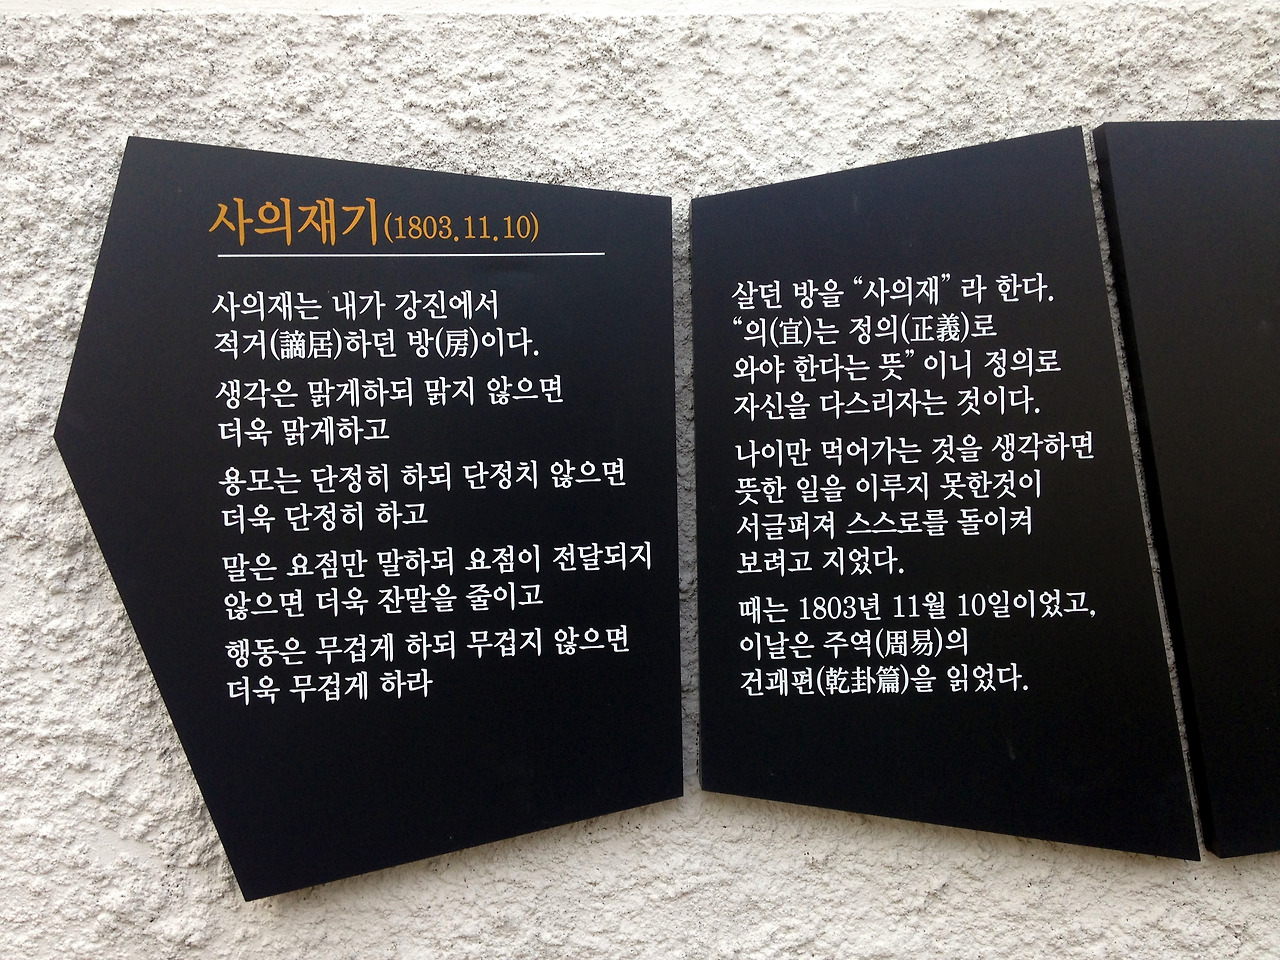 사의재기(1803.11.10)
사의재는 내가 강진에서
적거(謫居)하던 방(房)이다.
생각은 맑게하되 맑지 않으면
더욱 맑게하고
용모는 단정히 하되 단정치 않으면
더욱 단정히 하고
말은 요점만 말하되 요점이 전달되지
않으면 더욱 잔말을 줄이고
행동은 무겁게 하되 무겁지 않으면
더욱 무겁게 하라
살던 방을 “사의재” 라 한다.
“의(宜)는 정의(正義)로
와야 한다는 뜻” 이니 정의로
자신을 다스리자는 것이다.
나이만 먹어가는 것을 생각하면
뜻한 일을 이루지 못한것이
서글퍼져 스스로를 돌이켜
보려고 지었다.
때는 1803년 11월 10일이었고,
이날은 주역(周易)의
건괘편(乾卦篇)을 읽었다.